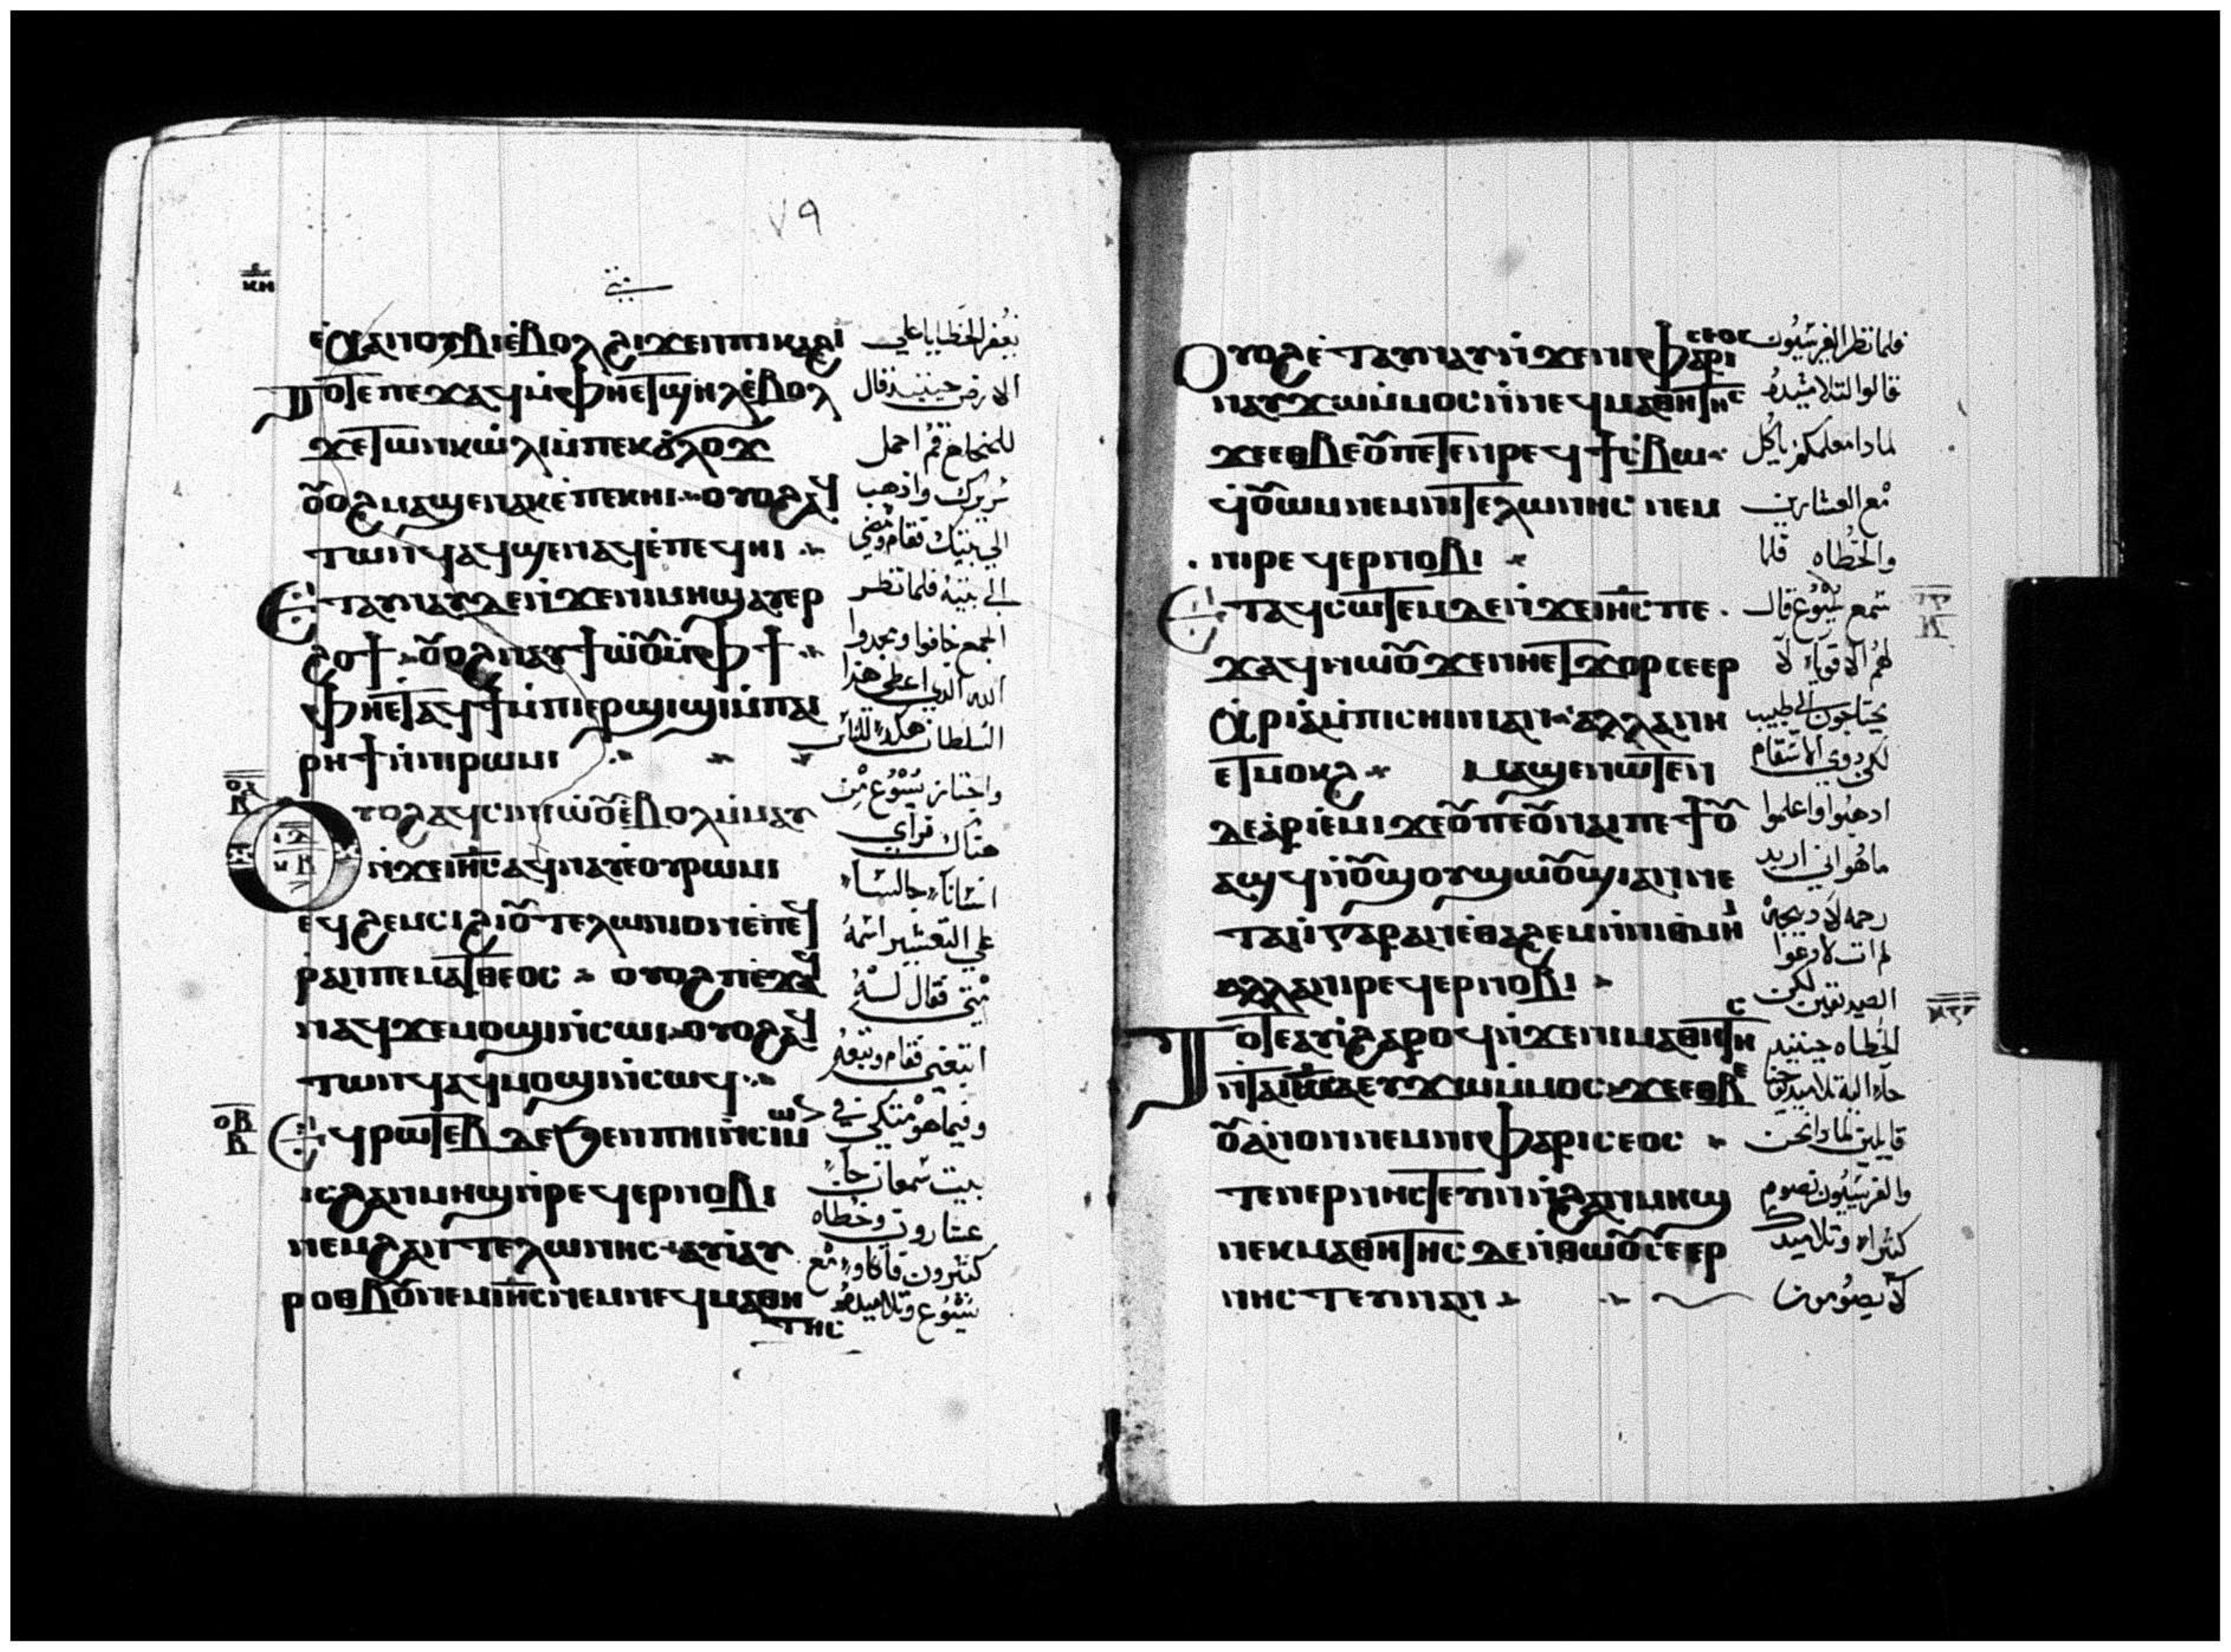 ٧٩
ⲕⲏ
ⲉ̀ⲭⲁⲛⲟⲩⲃⲓⲉ̀ⲃⲟⲗϩⲓϫⲉⲛⲡⲓⲕⲁϩⲓ
ⲧⲟⲧⲉⲡⲉϫⲁϥⲙ̀ⲫⲏⲉⲧϣⲏⲗⲉ̀ⲃⲟⲗ
ϫⲉⲧⲱⲛⲕⲱ̀ⲗⲓⲙ̀ⲡⲉⲕϭⲗⲟϫ
ⲟⲩⲟϩⲙⲁϣⲉⲛⲁⲕⲉ̀ⲡⲉⲕⲏⲓ ⲟⲩⲟϩⲁϥ
ⲧⲱⲛϥⲁϥϣⲉⲛⲁϥⲉ̀ⲡⲉϥⲏⲓ
ⲉⲧⲁⲩⲛⲁⲩⲇⲉⲛ̀ϫⲉⲛⲓⲙⲏϣⲁⲩⲉⲣ
ϩⲟϯ ⲟⲩⲟϩⲛⲁⲩϯⲱ̀ⲟⲩⲙ̀ⲫϯ
ⲫⲏⲉⲧⲁϥϯⲙ̀ⲡⲓⲉⲣϣⲓϣⲓⲙ̀ⲡⲁⲓ
ⲣⲏϯⲛ̀ⲛⲓⲣⲱⲙⲓ
ⲟⲩⲟϩⲁϥⲥⲓⲛⲓⲱ̀ⲟⲩⲉ̀ⲃⲟⲗⲙ̀ⲙⲁⲩ
ⲛ̀ϫⲉⲓⲏⲥⲁϥⲛⲁⲩⲉ̀ⲟⲩⲣⲱⲙⲓ
ⲉϥϩⲉⲙⲥⲓϩⲓⲟⲩⲧⲉⲗⲱⲛⲓⲟⲛⲉ̀ⲡⲉϥ
ⲣⲁⲛⲡⲉⲙⲁⲧⲑⲉⲟⲥ ⲟⲩⲟϩⲡⲉϫⲁϥ
ⲛⲁϥϫⲉⲙⲟϣⲓⲛ̀ⲥⲱⲓ ⲟⲩⲟϩⲁϥ
ⲧⲱⲛϥⲁϥⲙⲟϣⲓⲛ̀ⲥⲱϥ
ⲉϥⲣⲱⲧⲉⲃⲇⲉϧⲉⲛⲡⲏⲓⲛ̀ⲥⲓⲙⲱⲛ
ⲓⲥϩⲁⲛⲙⲏϣⲛ̀ⲣⲉϥⲉⲣⲛⲟⲃⲓ
ⲛⲉⲙϩⲁⲛⲧⲉⲗⲱⲛⲏⲥ ⲁⲩⲓ̀ⲁⲩ
ⲣⲟⲑⲃⲟⲩⲛⲉⲙⲓⲏⲥⲛⲉⲙⲛⲉϥⲙⲁⲑⲏ
ⲧⲏⲥ
يغفر الخطايا علي
الارض حينيذ قال
للمخلع قم احمل
سريرك واذهب
الي بيتك فقام ومضي
الي بيته فلما نظر
الجمع خافوا ومجدوا
الله الذي اعطي هذا
السلطان هكذا للناس
واجتاز يسوع من
هناك فراي
انسانا جالسا
علي التعشير اسمه
متي فقال له
اتبعني فقام وتبعه
وفيما هو متكي في
بيت سمعان جا
عشارون وخطاه
كثيرون فاتكاوا مع
يسوع وتلاميذه
ⲟⲩⲟϩⲉ̀ⲧⲁⲩⲛⲁⲩⲛ̀ϫⲉⲛⲓⲫⲁⲣⲓⲥⲉⲟⲥ
ⲛⲁⲩϫⲱⲙ̀ⲙⲟⲥⲛ̀ⲛⲉϥⲙⲁⲑⲏⲧⲏⲥ
ϫⲉⲉⲑⲃⲉⲟⲩⲡⲉⲧⲉⲛⲣⲉϥϯⲥ̀ⲃⲱ
ϥⲟⲩⲱⲙⲛⲉⲙⲛⲓⲧⲉⲗⲱⲛⲏⲥ ⲛⲉⲙ
ⲛⲓⲣⲉϥⲉⲣⲛⲟⲃⲓ
ⲉⲧⲁϥⲥⲱⲧⲉⲙⲇⲉⲛ̀ϫⲉⲓⲏⲥⲡⲉ
ϫⲁϥⲛⲱⲟⲩϫⲉⲛⲏⲉⲧϫⲟⲣⲥⲉⲉⲣ
ⲭⲣⲓⲁⲙ̀ⲡⲓⲥⲏⲓⲛⲓⲁⲛ ⲁⲗⲗⲁⲛⲏ
ⲉⲧⲙⲟⲕϩ ⲙⲁϣⲉⲛⲱⲧⲉⲛ
ⲇⲉⲁ̀ⲣⲓⲉ̀ⲙⲓϫⲉⲟⲩⲡⲉⲟⲩⲛⲁⲓⲡⲉϯⲟⲩ
ⲁϣϥⲛ̀ⲟⲩϣⲟⲩϣⲱⲟⲩϣⲓⲁⲛⲛⲉ
ⲧⲁⲓ̀ⲅⲁⲣⲁⲛⲉ̀ⲑⲁϩⲉⲙⲛ̀ⲛⲓⲑⲙⲏⲓ
ⲁⲗⲗⲁⲛⲓⲣⲉϥⲉⲣⲛⲟⲃⲓ
ⲧⲟⲧⲉⲁⲩⲓ̀ϩⲁⲣⲟϥⲛ̀ϫⲉⲛⲓⲙⲁⲑⲏⲧⲏⲥ
ⲛ̀ⲧⲉⲓⲱⲁⲉⲩϫⲱⲙ̀ⲙⲟⲥϫⲉⲉⲑⲃⲉ
ⲟⲩⲁ̀ⲛⲟⲛⲛⲉⲙⲛⲓⲫⲁⲣⲓⲥⲉⲟⲥ
ⲧⲉⲛⲉⲣⲛⲏⲥⲧⲉⲩⲓⲛⲛ̀ϩⲁⲛⲙⲏϣ
ⲛⲉⲕⲙⲁⲑⲏⲧⲏⲥⲇⲉⲛ̀ⲑⲱⲟⲩⲥⲉⲉⲣ
ⲛⲏⲥⲧⲉⲩⲓⲛⲁⲛ
فلما نظر الفريسيون
قالوا لتلاميذه
لماذا معلمكم ياكل
مع العشارين
والخطاه فلما
سمع يسوع قال
لهم الاقويا لا
يحتاجون الي طبيب
لكن ذوي الاسقام
اذهبوا واعلموا
ما هو اني اريد
رحمه لا ذبيحه
لم ات لادعوا
الصديقين لكن
الخطاه حينيذ
جا اليه تلاميذ يوحنا
قايلين لماذا نحن
والفريسيون نصوم
كثيرا وتلاميذك
لا يصومون